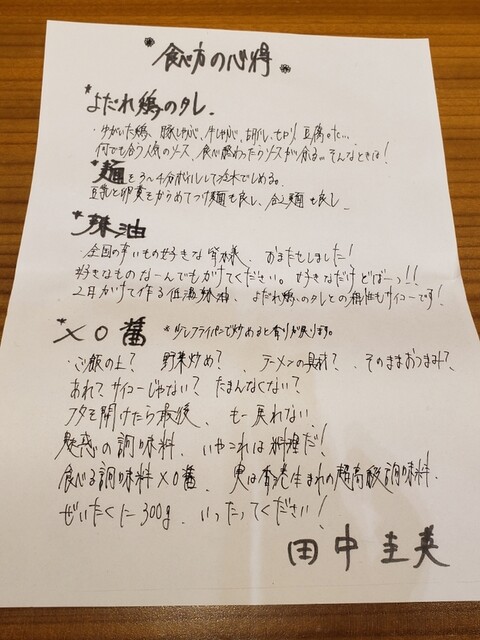 * 食べ方の心得 *
* よだれ鶏のタレ.
・ゆがいた鶏、豚しゃぶ、牛しゃぶ、
何でも合う人気のソース、食べ終わったらソースが余る。そんなときは！
* 麺を3〜4分ボイルして冷水でしめる。
豆乳と卵黄をからめてつけ麺も良し、合え麺も良し、
* 辣油
・全国の辛いもの好きな皆様、おまたせしました！
好きなものなーんでもかけてください。好きなだけどばーっ!!
2日かけて作る低温辣油、よだれ鶏のタレとの相性もサイコーです！
* XO醤 * 少しフライパンで炒めると香りが戻ります。
・ご飯の上？ 野菜炒め？、ラーメンの具材？、そのままおつまみ？、
あれ？サイコーじゃない？ たまんなくない？
フタを開けたら最後、もー戻れない、
魅惑の調味料、いやこれは料理だ！
食べる調味料XO醤、実は香港生まれの超高級調味料、
ぜいたくに300g、いったってください！
田中 圭英